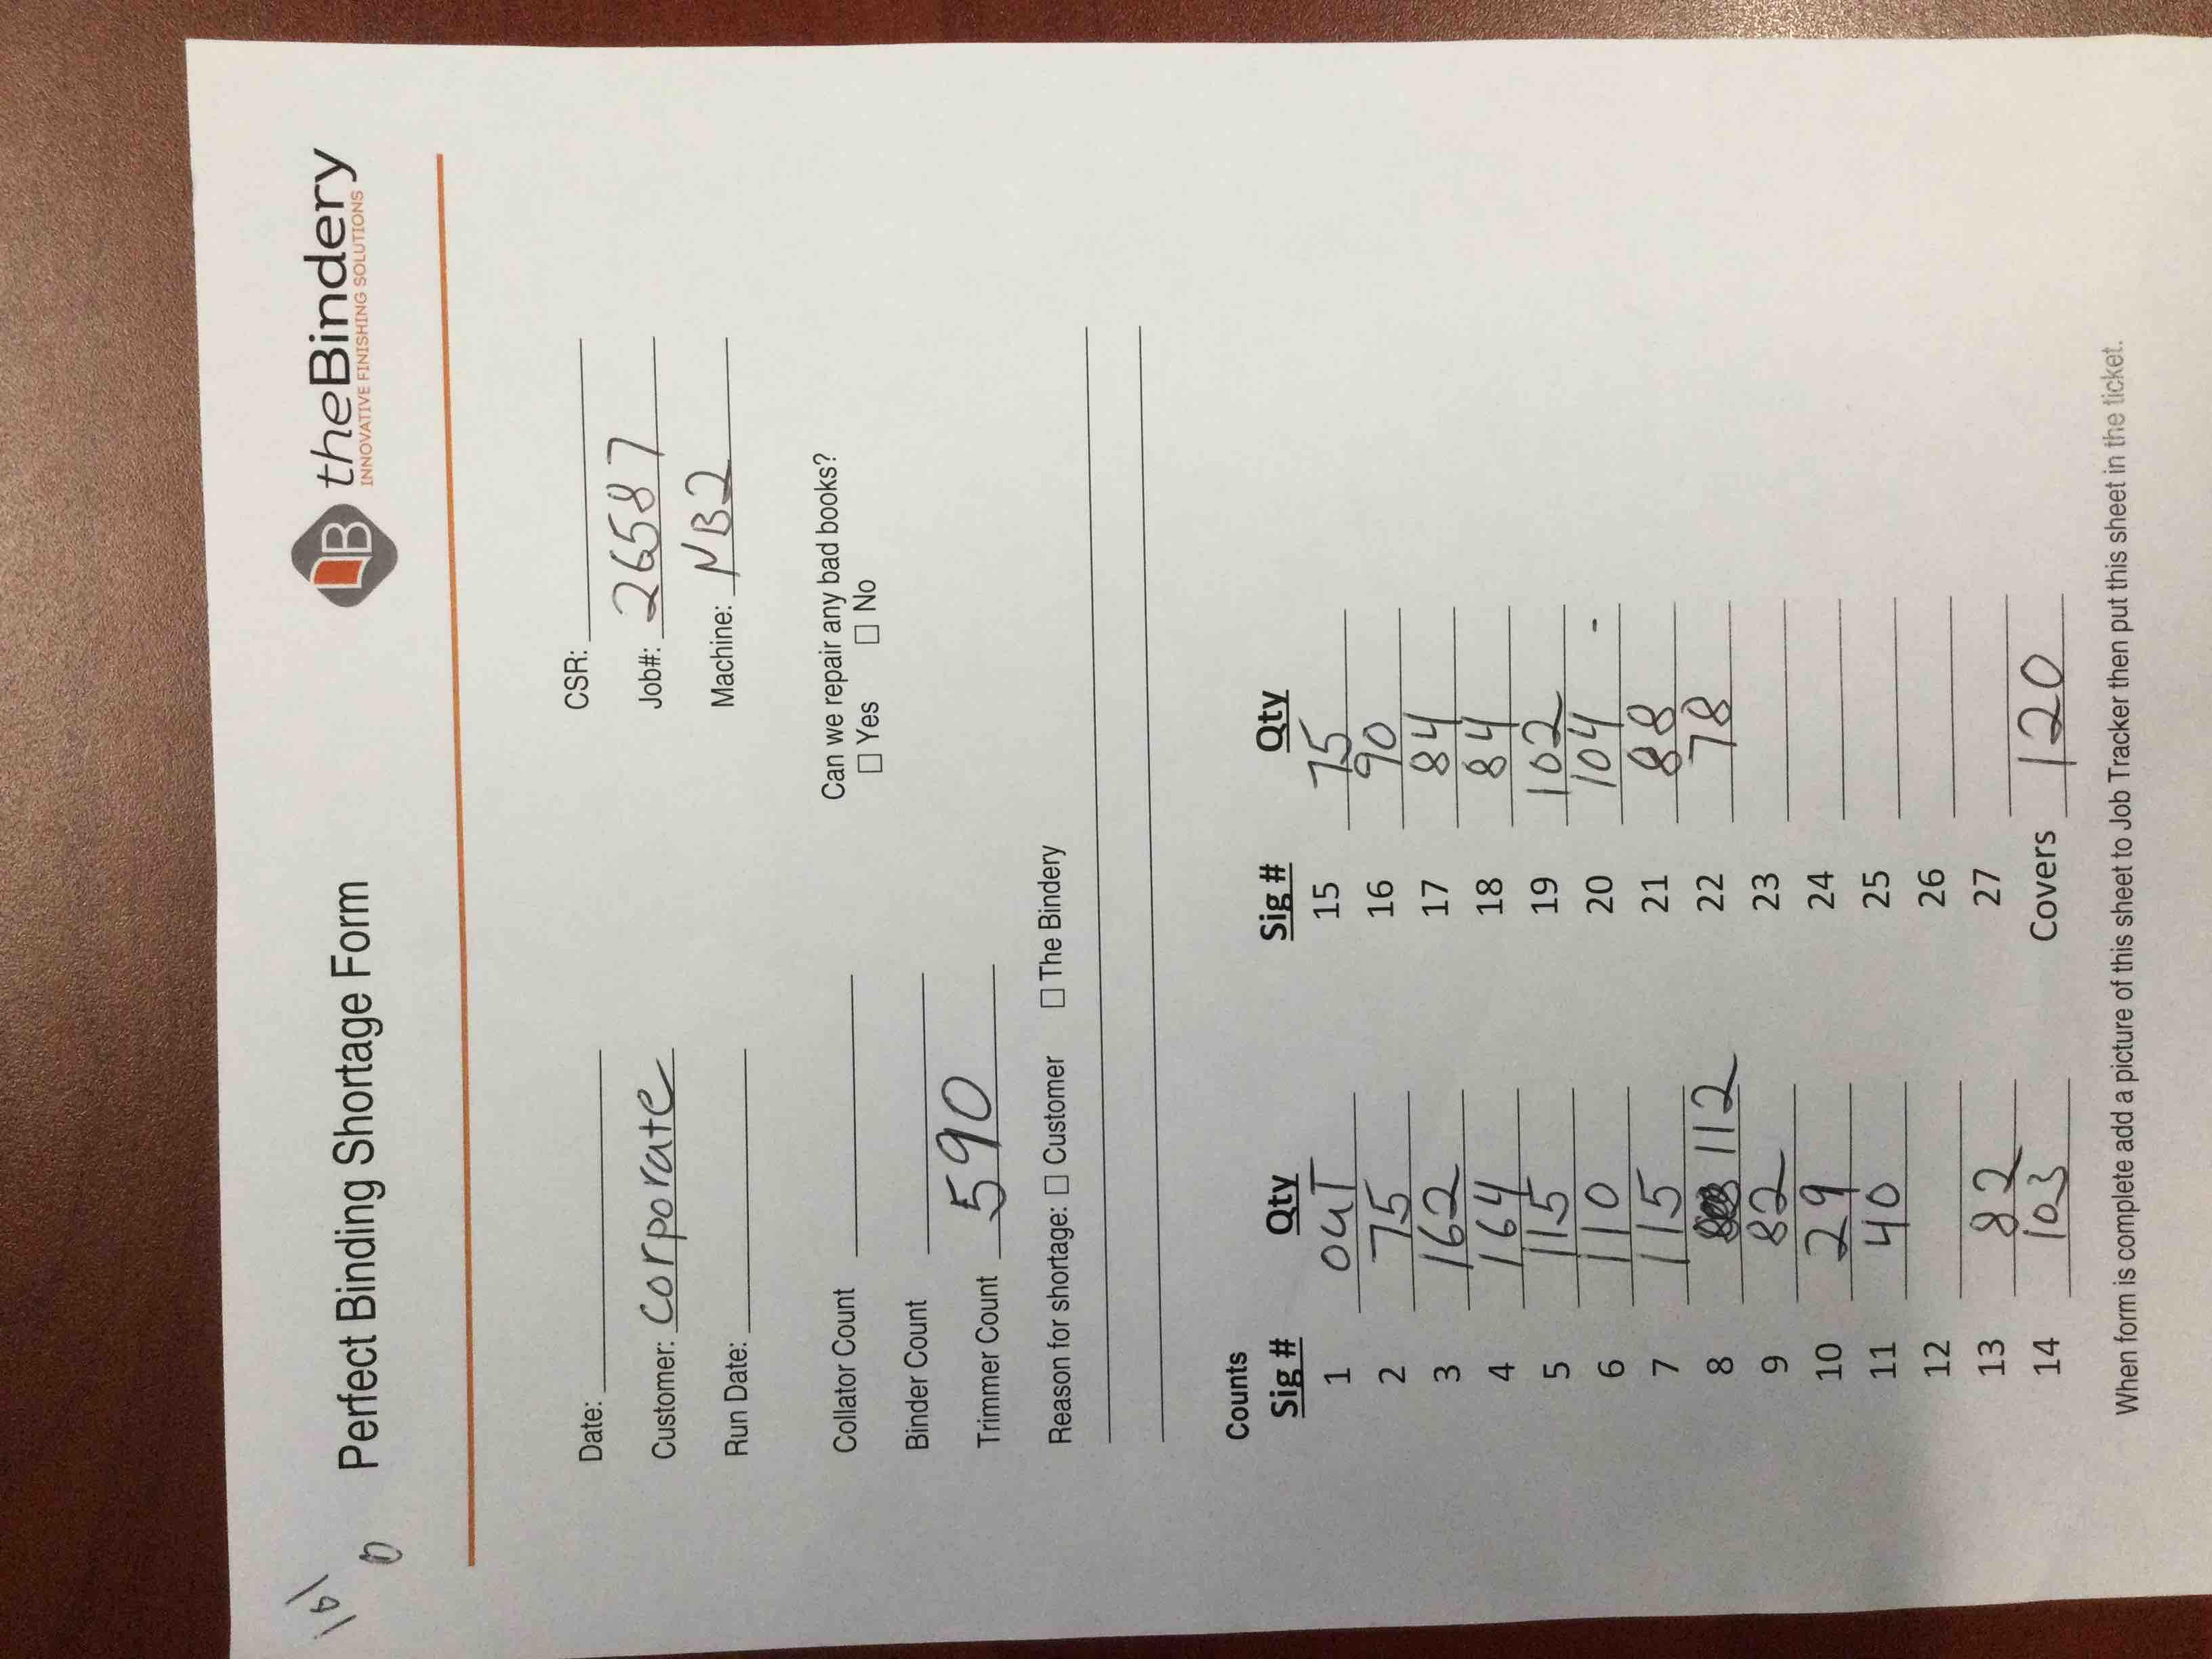 Perfect Binding Shortage Form
B theBindery
INNOVATIVE FINISHING SOLUTIONS
Date:
CSR:
Customer: Corporate
Job#: 26587
Run Date:
Machine: NB2
Collator Count
Can we repair any bad books?
☐ Yes ☐ No
Binder Count
Trimmer Count 590
Reason for shortage: ☐ Customer ☐ The Bindery
Counts
Sig # Qty Sig # Qty
1 OUT 15 75
2 75 16 90
3 162 17 84
4 164 18 84
5 115 19 102
6 110 20 104
7 115 21 88
8 112 22 78
9 82 23
10 29 24
11 40 25
12 26
13 82 27
14 103 Covers 120
When form is complete add a picture of this sheet to Job Tracker then put this sheet in the ticket.